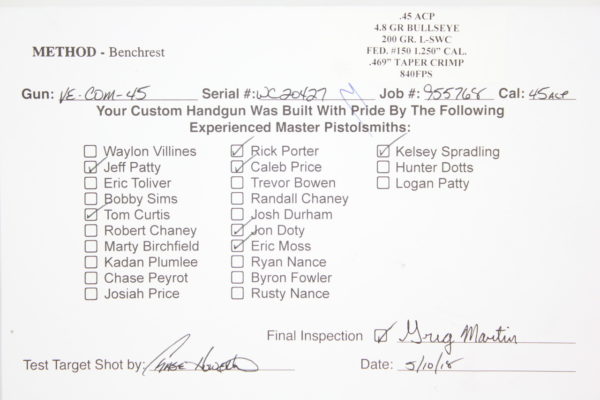 .45 ACP
4.8 GR BULLSEYE
200 GR. L-SWC
FED. #150 1.250" CAL.
.469" TAPER CRIMP
840FPS
METHOD - Benchrest
Gun: VE-COM-45 Serial #: WC20427 Job #: 955768 Cal: 45ACP
Your Custom Handgun Was Built With Pride By The Following
Experienced Master Pistolsmiths:
Waylon Villines
Jeff Patty
Eric Toliver
Bobby Sims
Tom Curtis
Robert Chaney
Marty Birchfield
Kadan Plumlee
Chase Peyrot
Josiah Price
Rick Porter
Caleb Price
Trevor Bowen
Randall Chaney
Josh Durham
Jon Doty
Eric Moss
Ryan Nance
Byron Fowler
Rusty Nance
Kelsey Spradling
Hunter Dotts
Logan Patty
Final Inspection Greg Martin
Test Target Shot by: Chase Howell
Date: 5/10/18